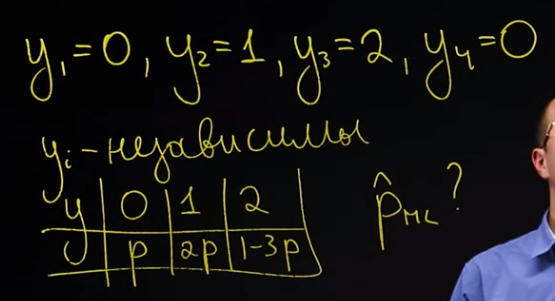 y₁=0, y₂=1, y₃=2, y₄=0
yᵢ - независимы
y | 0 | 1 | 2
p | 2p | 1-3p
p̂ₘₗ?